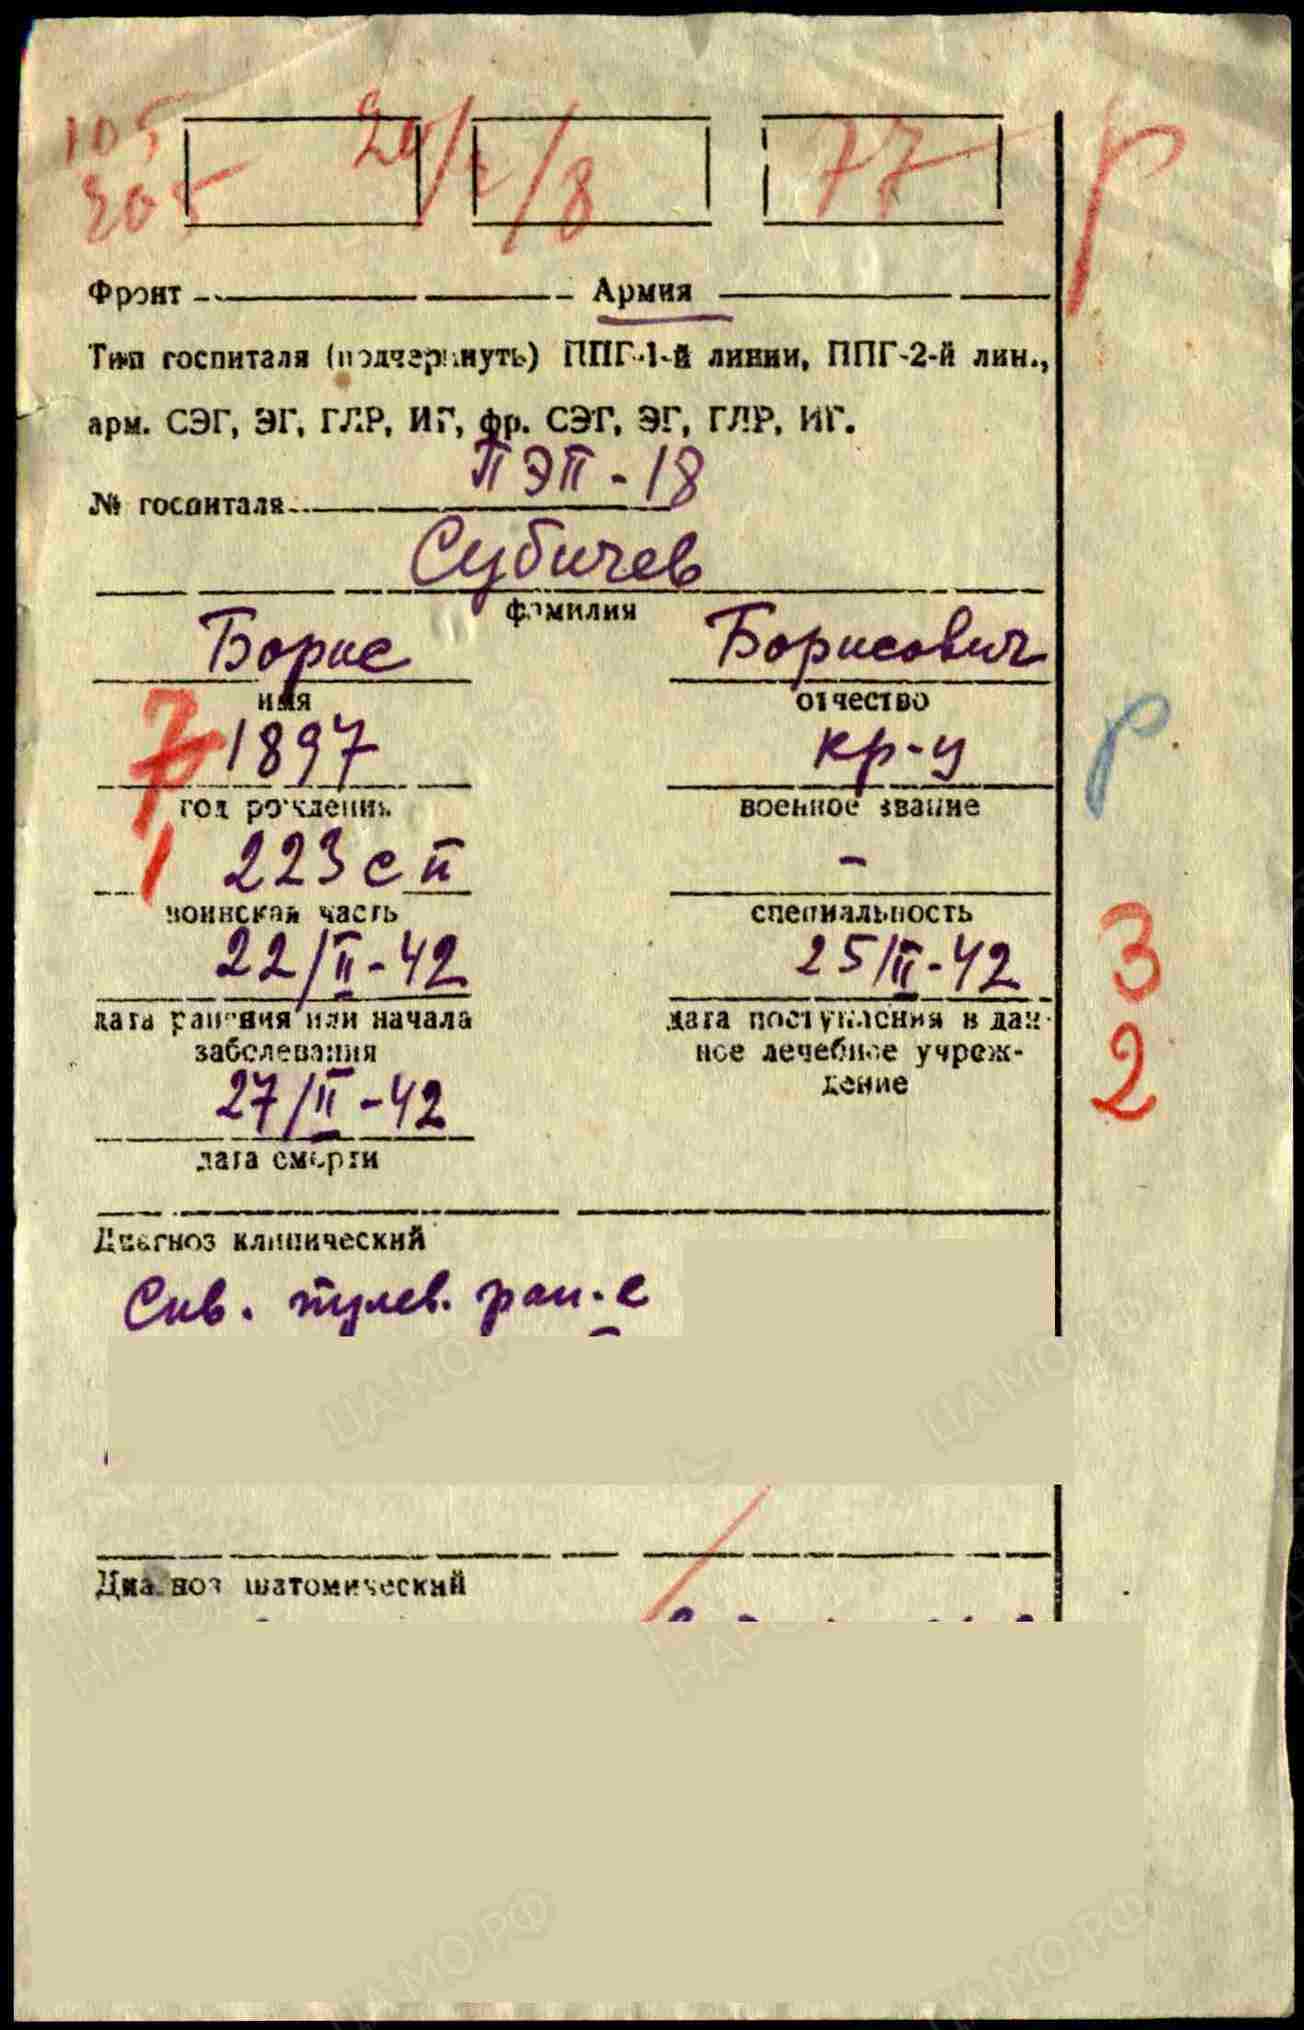 105
205
20/2/8
77
р
Фронт Армия
Тип госпиталя (подчеркнуть) ППГ-1-й линии, ППГ-2-й лин.,
арм. СЭГ, ЭГ, ГЛР, ИГ, фр. СЭГ, ЭГ, ГЛР, ИГ.
ПЭП-18
№ госпиталя
Субичев
фамилия
Борис Борисович
имя отчество
1897 кр-ц
год рождения военное звание
р
223 сп -
воинская часть специальность
22/II-42 25/II-42
3
дата ранения или начала дата поступления в дан-
заболевания ное лечебное учреж-
дение
2
27/II-42
дата смерти
Диагноз клинический
Скв. пулев. ран-е
Диагноз анатомический
ЦАМО.РФ
ЦАМО.РФ
ЦАМО.РФ
ЦАМО.РФ